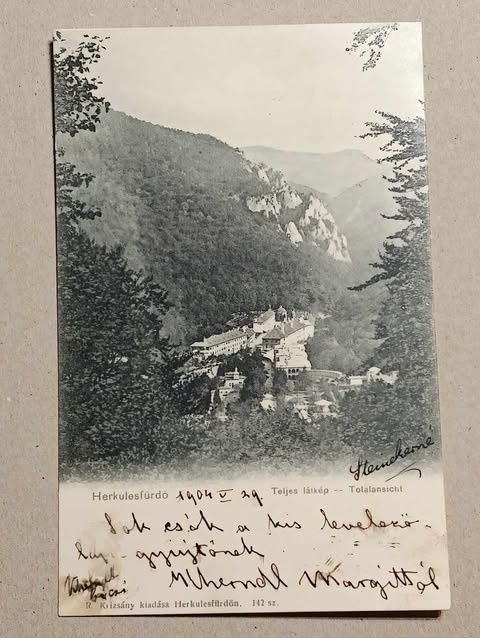 Herkulesfürdő 1904 V 29. Teljes látkép — Totalansicht
Sok csók a kis levelező-
lap-gyűjtőnek
Margittól
R. Krizsány kiadása Herkulesfürdőn. 142 sz.